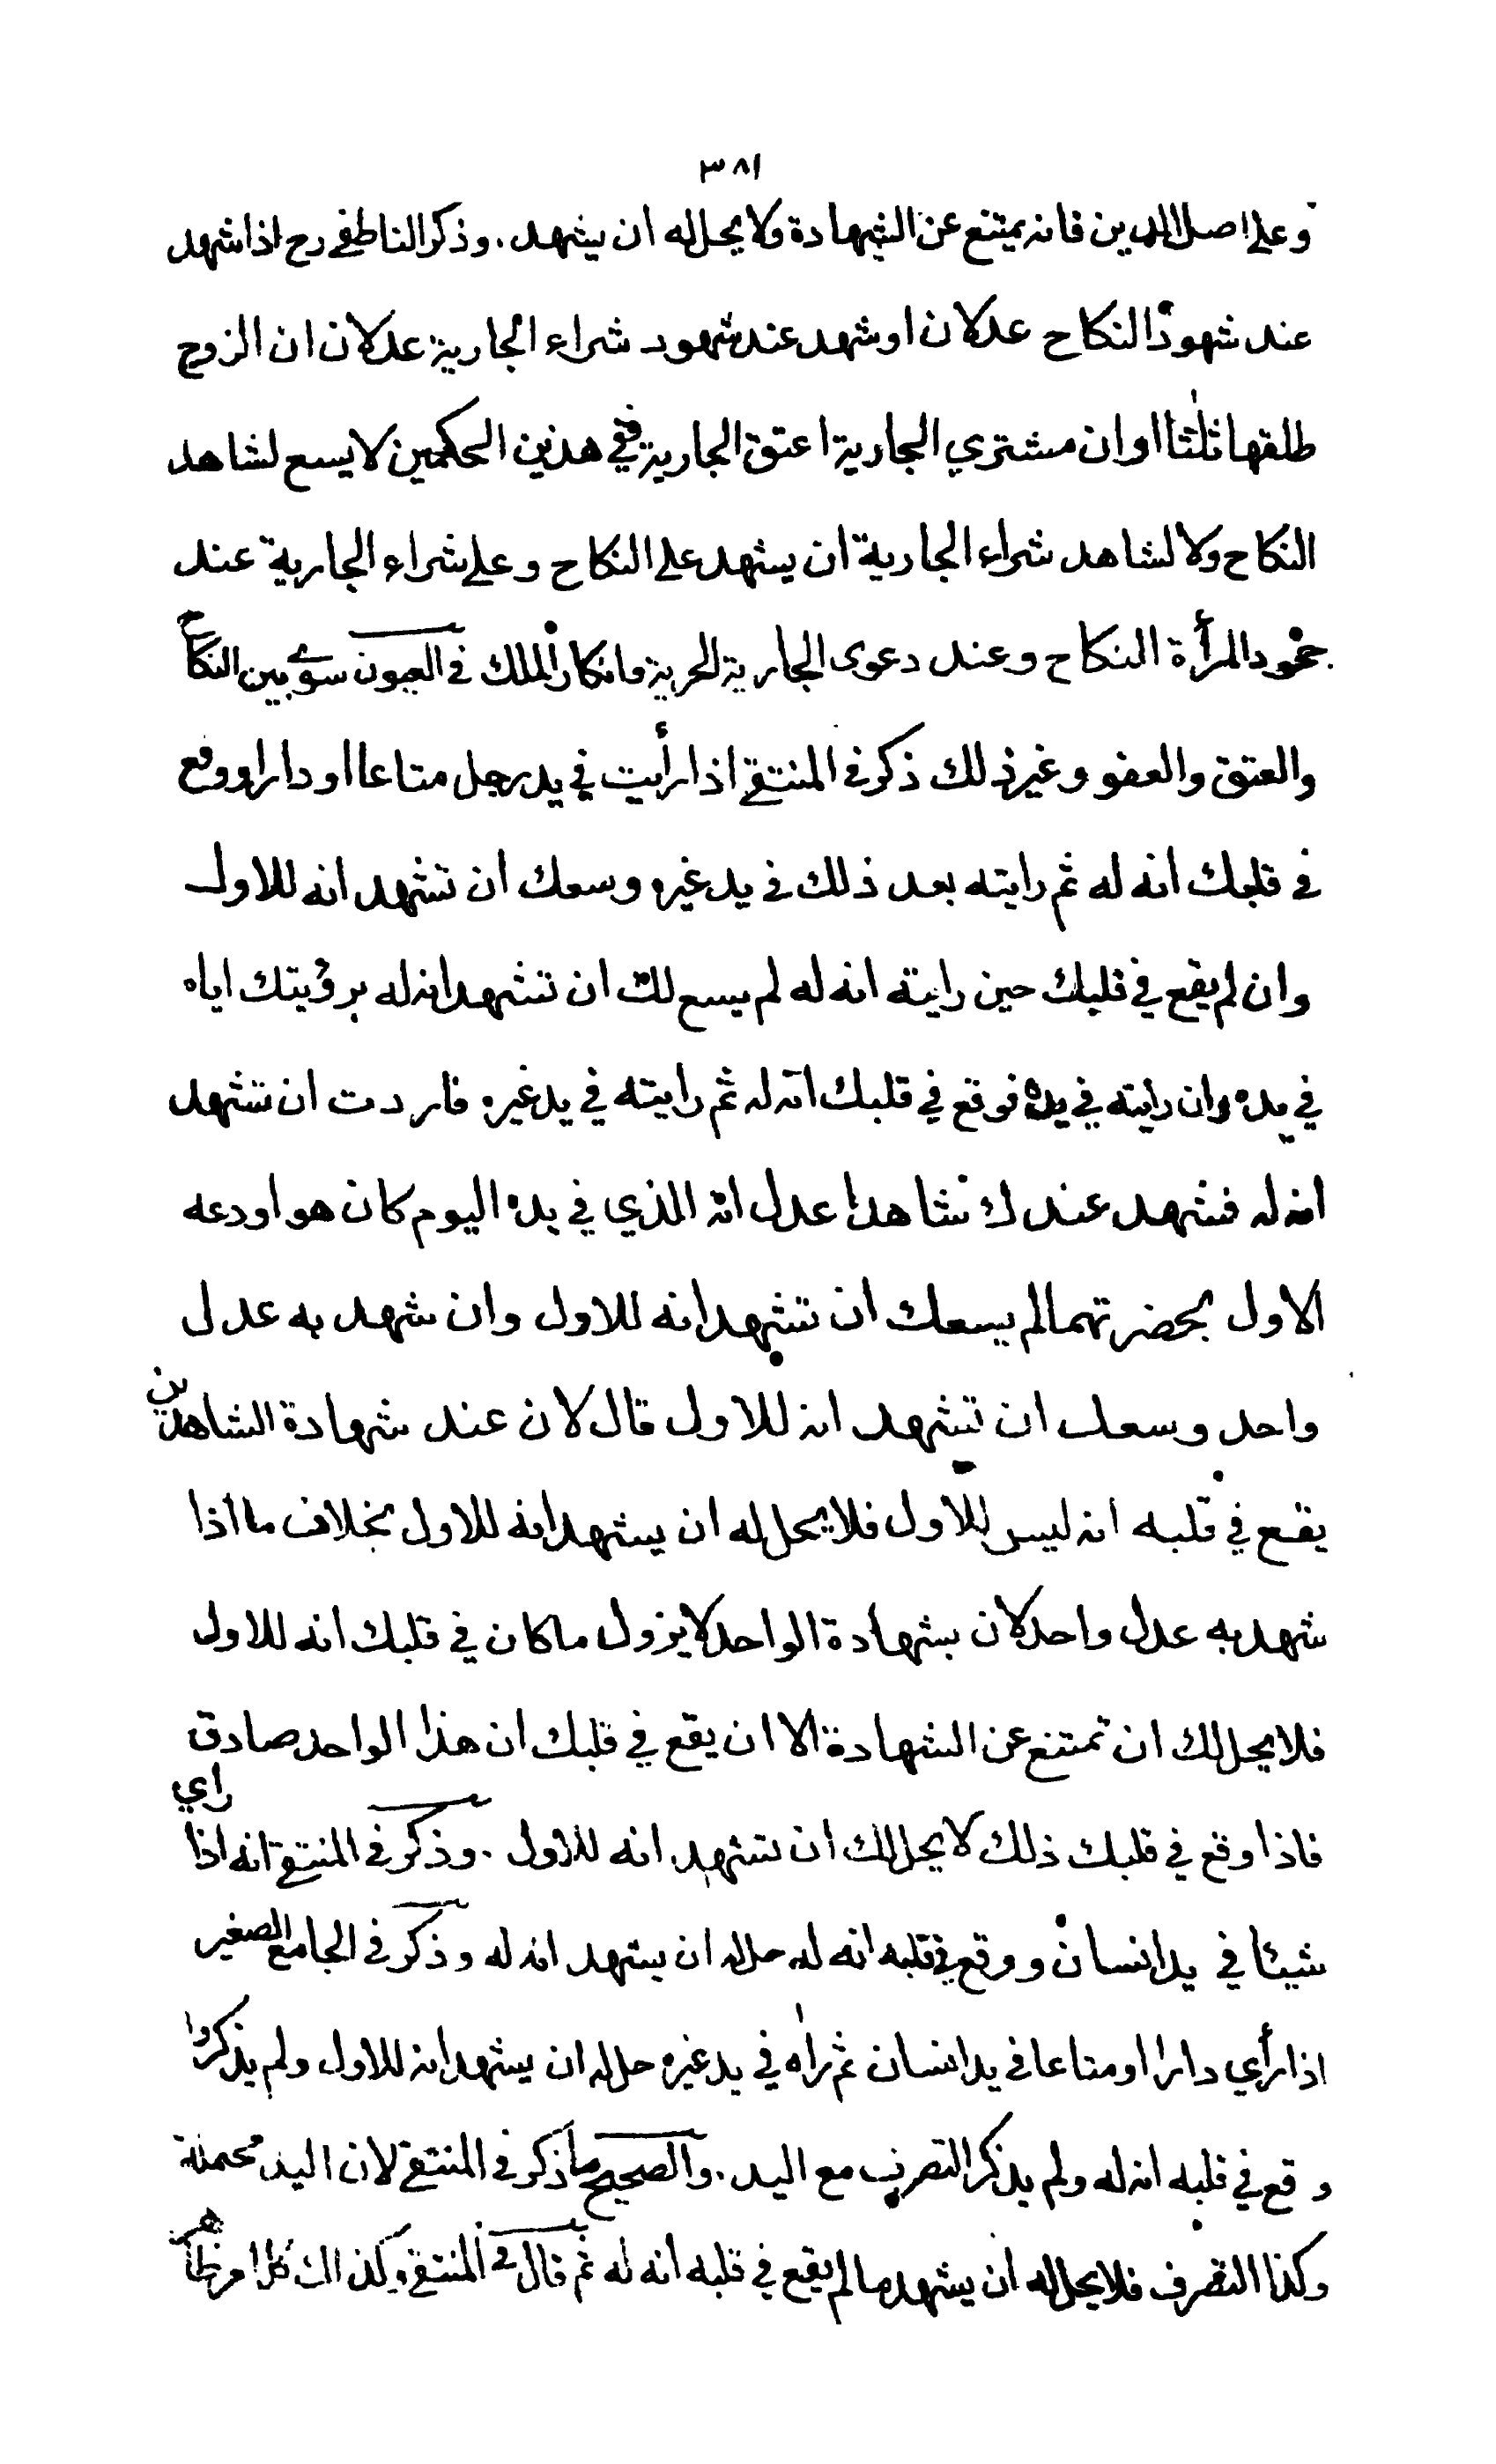 ٣٨١
وعلى اصل الدين فانه يمتنع عن الشهادة ولا يحل له ان يشهد . وذكر الناطفي رح اذا شهد
عند شهود النكاح عدلان او شهد عند شهود شراء الجارية عدلان ان الزوج
طلقها ثلثا او ان مشتري الجارية اعتق الجارية ففي هذين الحكمين لا يسع لشاهد
النكاح ولا لشاهد شراء الجارية ان يشهد على النكاح وعلى شراء الجارية عند
جحود المرأة النكاح وعند دعوى الجارية الحرية وانكار الملك في العيون سوى بين النكاح
والعتق والعفو وغير ذلك ذكر في المنتقى اذا رأيت في يد رجل متاعا او دارا ووقع
في قلبك انه له ثم رايته بعد ذلك في يد غيره وسعك ان تشهد انه للاول
وان لم يقع في قلبك حين رايته انه له لم يسع لك ان تشهد انه له برؤيتك اياه
في يده وان رايته في يده فوقع في قلبك انه له ثم رايته في يد غيره فاردت ان تشهد
انه له فشهد عندك شاهدا عدل انه الذي في يده اليوم كان هو اودعه
الاول بحضرتهما لم يسعك ان تشهد انه للاول وان شهد به عدل
واحد وسعك ان تشهد انه للاول قال لان عند شهادة الشاهدين
يقع في قلبه انه ليس للاول فلا يحل له ان يشهد انه للاول بخلاف ما اذا
شهد به عدل واحد لان بشهادة الواحد لا يزول ما كان في قلبك انه للاول
فلا يحل لك ان تمتنع عن الشهادة الا ان يقع في قلبك ان هذا الواحد صادق
فاذا وقع في قلبك ذلك لا يحل لك ان تشهد انه للاول . وذكر في المنتقى انه اذا راي
شيئا في يد انسان ووقع في قلبه انه له حل له ان يشهد انه له وذكر في الجامع الصغير
اذا رأي دارا او متاعا في يد انسان ثم رأه في يد غيره حل له ان يشهد انه للاول ولم يذكروا
وقع في قلبه انه له ولم يذكر التصرف مع اليد . والصحيح ما ذكر في المنتقى لان اليد محتملة
وكذا التصرف فلا يحل له ان يشهد ما لم يقع في قلبه انه له ثم قال في المنتقى وكذلك كل امر ظاهر